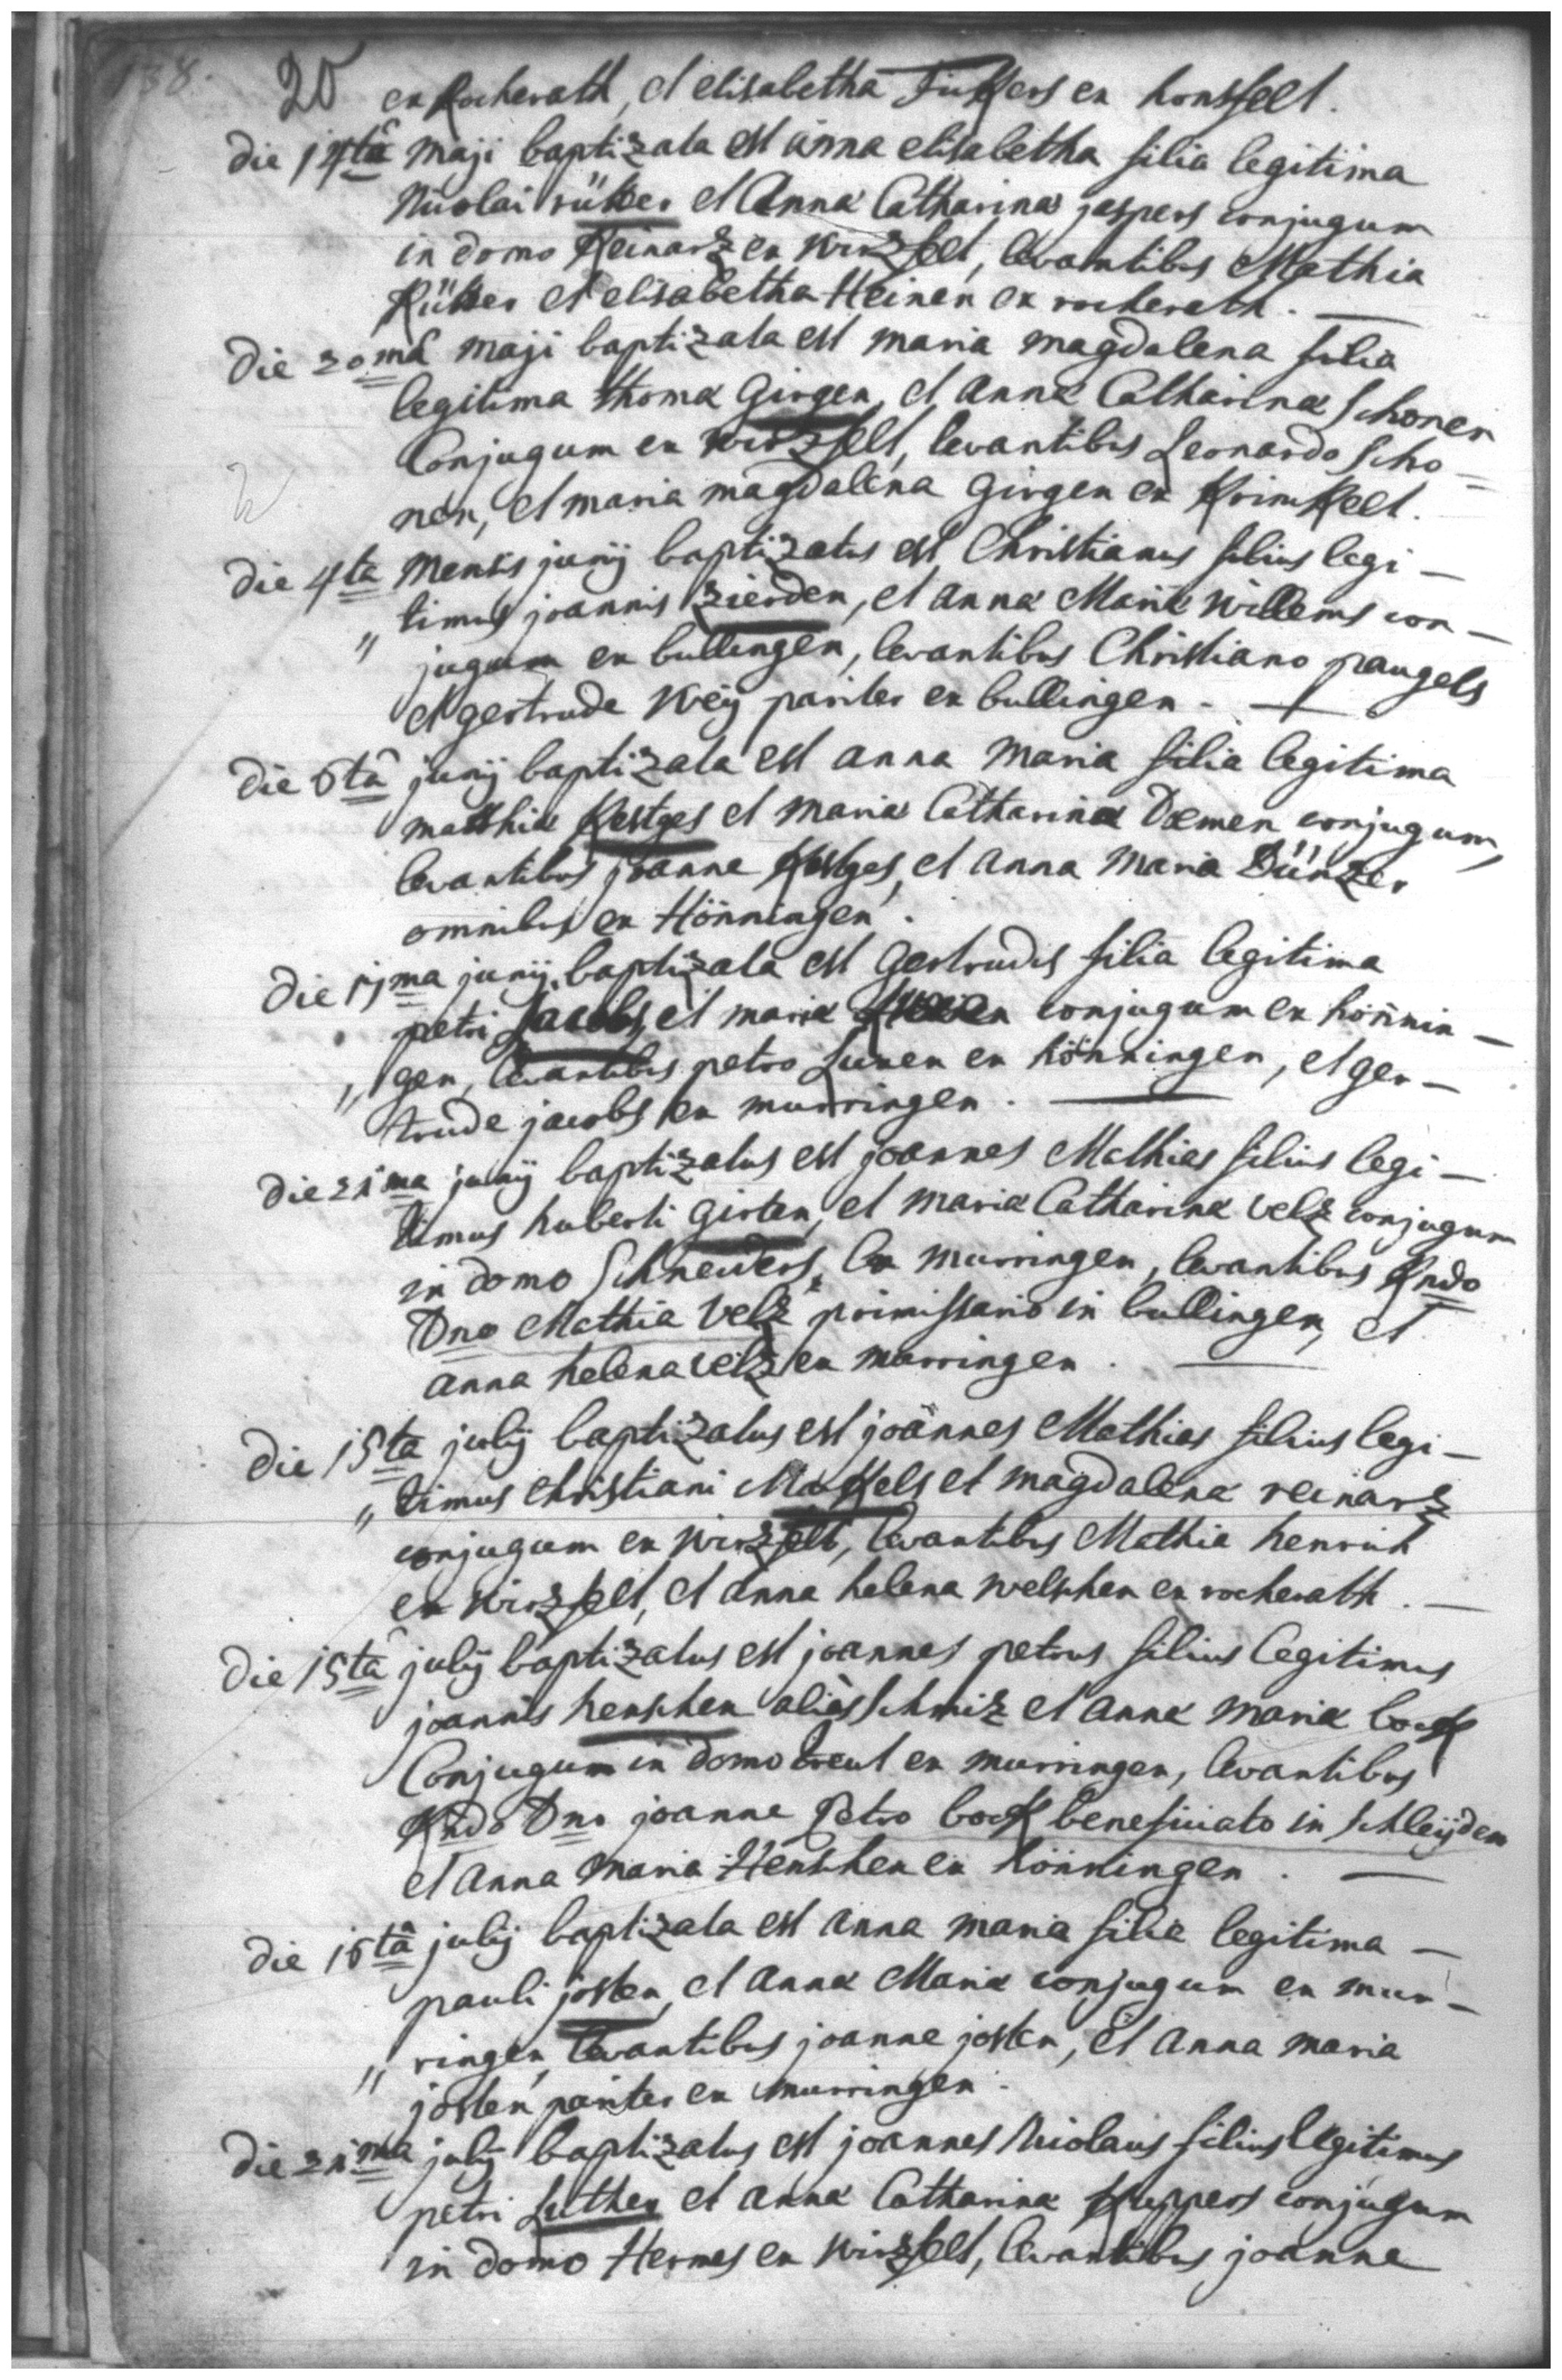 138.
20 ex Rocherath, et elisabetha ex honsfelt.
die 14ta maji baptizata est anna elisabetha filia legitima
Nicolai rütter et Annæ Catharinæ jaspers conjugum
in domo Reinarz ex wirzfelt, levantibus Mathia
Rütter et elisabetha Heinen ex rocherath. —
die 20mâ maji baptizata est maria magdalena filia
legitima thomæ Girgen, et annæ Catharinæ schonen
Conjugum ex wirzfelt, levantibus Leonardo scho=
nen, et maria magdalena Girgen ex Krinkelt.
die 4ta mensis junij baptizatus est Christianus filius legi–
" timus joannis zierden, et annæ Mariæ willems con–
jugum ex bullingen, levantibus Christiano paugels
et gertrude weÿ pariter ex bullingen. —
die 6tâ junij baptizata est anna maria filia legitima
matthiæ Kestges et mariæ Catharinæ Dæmen conjugum,
levantibus joanne Kestges, et anna maria Dünzer
omnibus ex Hönningen.
die 11ma junij baptizata est Gertrudis filia legitima
petri Jacobs, et mariæ conjugum ex hönnin–
" gen, levantibus petro Luxen ex hönningen, et ger–
trude jacobs ex murringen. —
die 21ma junij baptizatus est joannes Mathias filius legi–
timus huberti Girten, et mariæ Catharinæ velz conjugum
in domo Schneiders, ex murringen, levantibus Rndo
Dno Mathia Velz primissario in bullingen, et
anna helena velz ex murringen. —
die 15ta julij baptizatus est joannes Mathias filius legi–
" timus christiani Markels et magdalenæ reinarz
conjugum ex wirzfelt, levantibus Mathia henrich
ex wirzfelt, et anna helena welschen ex rocherath. —
die 15tâ julij baptizatus est joannes petrus filius legitimus
joannis henschen aliàs schmiz et annæ mariæ bock
Conjugum in domo treut ex murringen, levantibus
Rndo Dno joanne Petro bock beneficiato in schleÿden
et anna maria Henschen ex hönningen. —
die 16tâ julij baptizata est anna maria filia legitima –
pauli josten, et annæ Mariæ conjugum ex mur–
" ringen, levantibus joanne josten, et anna maria
josten pariter ex murringen.
die 21ma julij baptizatus est joannes Nicolaus filius legitimus
petri Luthen et annæ Catharinæ Kuppers conjugum
in domo Hermes ex wirzfelt, levantibus joanne